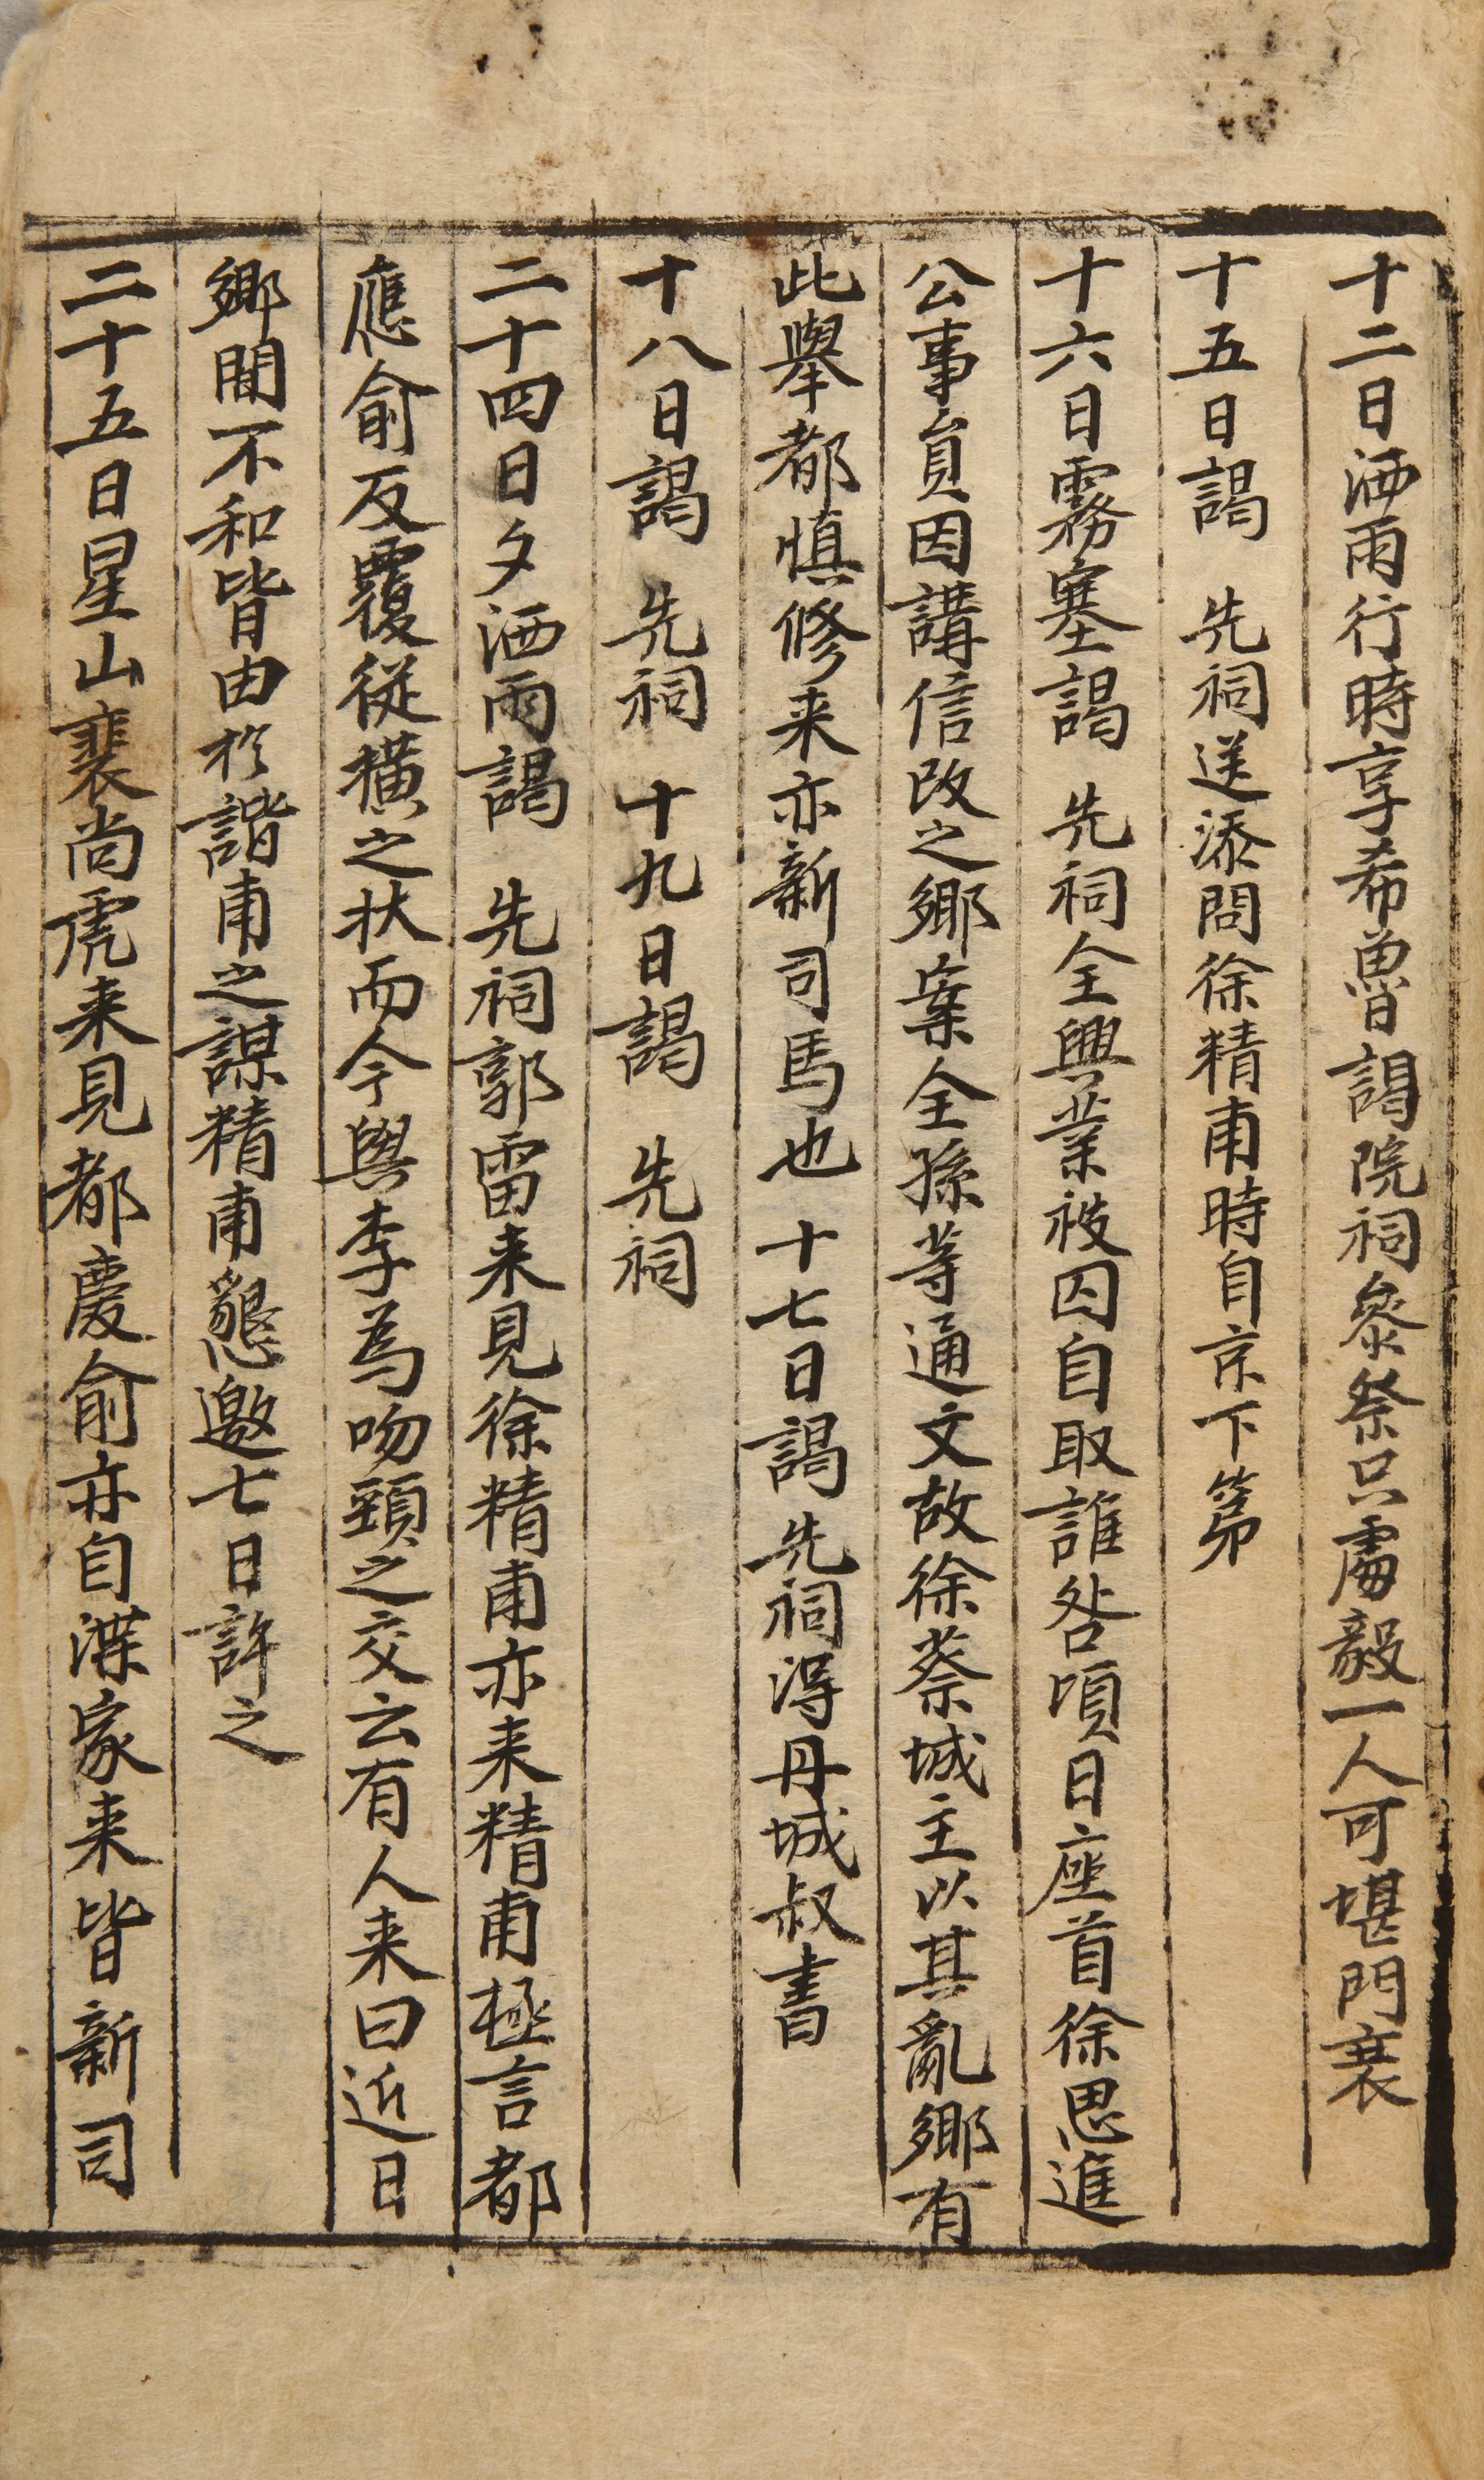 十二日洒雨行時享希魯謁院祠叅祭只處毅一人可堪門衰
十五日謁 先祠送添問徐精甫時自京下第
十六日霧塞謁 先祠全興業被囚自取誰咎頃日座首徐思進
公事員因講信改之鄕案全孫等通文故徐蔡城主以其亂鄕有
此擧都愼修来亦新司馬也 十七日謁先祠淂丹城叔書
十八日謁 先祠 十九日謁 先祠
二十四日夕洒雨謁 先祠郭雷来見徐精甫亦来精甫極言都
應俞反覆從横之状而今與李為吻頸之交云有人来曰近日
鄕間不和皆由於諧甫之謀精甫懇邀七日許之
二十五日星山裵尚虎来見都慶俞亦自渫家来皆新司